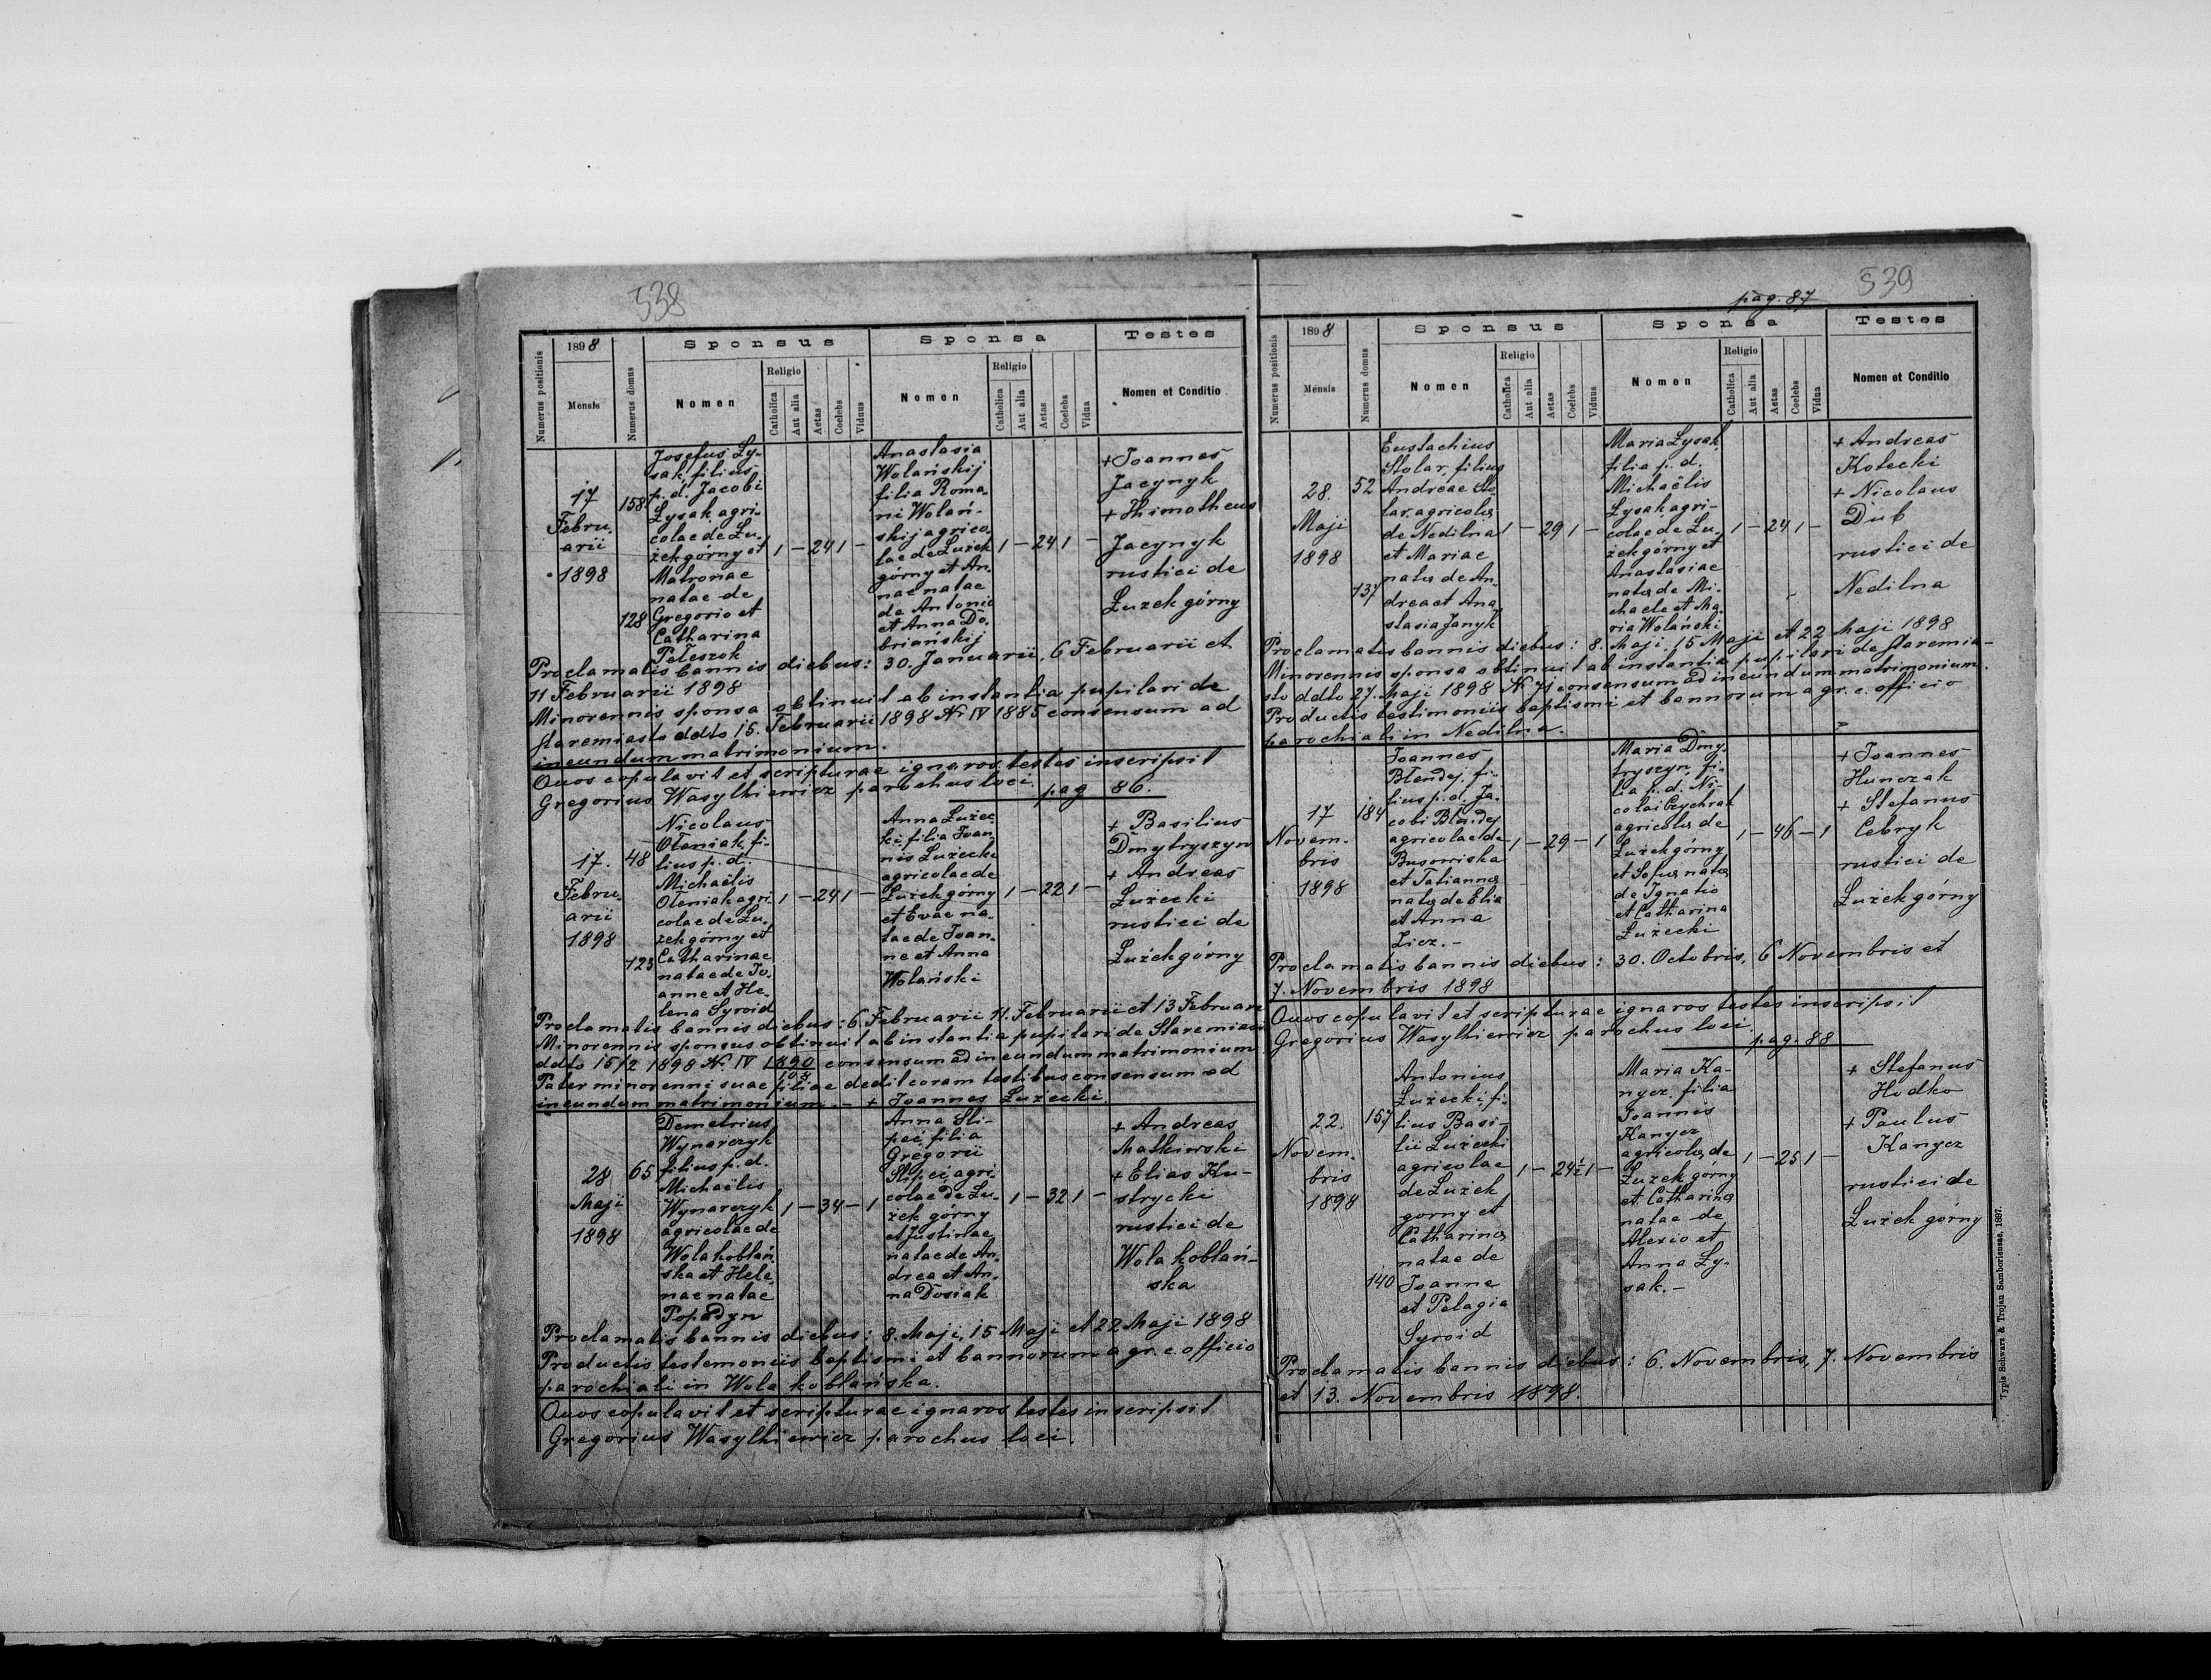 538
1898
Numerus positionis
Mensis
Numerus domus
Sponsus
Nomen
Religio
Catholica
Aut alia
Aetas
Coelebs
Viduus
Sponsa
Nomen
Religio
Catholica
Aut alia
Aetas
Coelebs
Vidua
Testes
Nomen et Conditio
17
Febru-
arii
1898
158
128
Josefus Ly-
sak, filius
p. d. Jacobi
Łysak agri-
colae de Łu-
żek górny et
Matronae
natae de
Gregorio et
Catharina
Peteszok
1 — 24 1 —
Anastasia
Wolańskij
filia Roma-
ni Wolań-
skij agrico-
lae de Łużek
górny et An-
nae natae
de Antonio
et Anna Do-
briańskij
1 — 24 1 —
+ Joannes
Jacynyk
+ Thimotheus
Jacynyk
rustici de
Łużek górny
Proclamatis bannis diebus: 30. Januarii, 6 Februarii et
11 Februarii 1898
Minorennis sponsa obtinuit ab instantia pupilari de
Staremiasto ddto 15. Februarii 1898 Nr IV 1885 consensum ad
ineundum matrimonium.
Quos copulavit et scripturae ignaros testes inscripsit
Gregorius Wasylkiewicz parochus loci.
pag 86.
17.
Febru-
arii
1898
48
123
Nicolaus
Oleniak, fi-
lius p. d.
Michaëlis
Oleniak agri-
colae de Łu-
żek górny et
Catharinae
natae de Jo-
anne et He-
lena Syroid
1 — 24 1 —
Anna Łużec-
ki, filia Joan-
nis Łużecki
agricolae de
Łużek górny
et Evae na-
tae de Joan-
ne et Anna
Wolański
1 — 22 1 —
+ Basilius
Dmytryszyn
+ Andreas
Łużecki
rustici de
Łużek górny
Proclamatis bannis diebus: 6 Februarii 11. Februarii et 13 Februarii
Minorennis sponsus obtinuit ab instantia pupilari de Staremiasto
ddto 15/2 1898 Nr. IV 1890/108 consensum ad ineundum matrimonium
Pater minorenni suae filiae dedit coram testibus consensum ad
ineundum matrimonium. — + Joannes Łużecki.
28
Maji
1898
65
Demetrius
Wynarczyk
filius p. d.
Michaëlis
Wynarczyk
agricolae de
Wola koblań-
ska et Hele-
nae natae
Popadyn
1 — 34 — 1
Anna Sli-
peć, filia
Gregorii
Slipeć, agri-
colae de Łu-
żek górny
et Justinae
natae de An-
drea et An-
na Dosiak
1 — 32 1 —
+ Andreas
Matkiwski
+ Elias Ku-
strycki
rustici de
Wola koblań-
ska
Proclamatis bannis diebus: 8. Maji, 15 Maji et 22 Maji 1898
Productis testemoniis baptismi et bannorum a gr. c. officio
parochiali in Wola koblańska.
Quos copulavit et scripturae ignaros testes inscripsit
Gregorius Wasylkiewicz parochus loci.
539
pag. 87
1898
Numerus positionis
Mensis
Numerus domus
Sponsus
Nomen
Religio
Catholica
Aut alia
Aetas
Coelebs
Viduus
Sponsa
Nomen
Religio
Catholica
Aut alia
Aetas
Coelebs
Vidua
Testes
Nomen et Conditio
28.
Maji
1898
52
137
Eustachius
Stolar, filius
Andreae Sto-
lar, agricolae
de Nedilna
et Mariae
natae de An-
drea et Ana-
stasia Janyk
1 — 29 1 —
Maria Łysak,
filia p. d.
Michaëlis
Łysak agri-
colae de Łu-
żek górny et
Anastasiae
natae de Mi-
chaele et Ma-
ria Wolański
1 — 24 1 —
+ Andreas
Kotecki
+ Nicolaus
Dub
rustici de
Nedilna
Proclamatis bannis diebus: 8. Maji, 15 Maji et 22 Maji 1898
Minorennis sponsa obtinuit ab instantia pupilari de Staremia-
sto ddto 27. Maji 1898 Nr 71 consensum ad ineundum matrimonium.
Productis testimoniis baptismi et bannorum a gr. c. officio
parochiali in Nedilna.
17
Novem-
bris
1898
184
Joannes
Blendej, fi-
lius p. d. Ja-
cobi Blendej
agricolae de
Busowiska
et Tatiannae
natae de Elia
et Anna
Licz. —
1 — 29 — 1
Maria Dmy-
tryszyn, fi-
lia p. d. Ni-
colai Czychrak
agricolae de
Łużek górny
et Sofiae natae
de Ignatio
et Catharina
Łużecki
1 — 46 — 1
+ Joannes
Hunczak
+ Stefanus
Cebryk
rustici de
Łużek górny
Proclamatis bannis diebus: 30. Octobris, 6 Novembris et
7. Novembris 1898
Quos copulavit et scripturae ignaros testes inscripsit
Gregorius Wasylkiewicz parochus loci.
pag. 88
22.
Novem-
bris
1898
157
140
Antonius
Łużecki, fi-
lius Basi-
lii Łużecki
agricolae
de Łużek
gorny et
Catharinae
natae de
Joanne
et Pelagia
Syroid
1 — 24½ 1 —
Maria Ka-
nycz, filia
Joannis
Kanycz
agricolae de
Łużek górny
et Catharinae
natae de
Alexio et
Anna Ly-
sak. —
1 — 25 1 —
+ Stefanus
Hodko
+ Paulus
Kanycz
rustici de
Łużek górny
Proclamatis bannis diebus: 6. Novembris, 7. Novembris
et 13. Novembris 1898.
Typis Schwarz & Trojan Samboriensae, 1897.